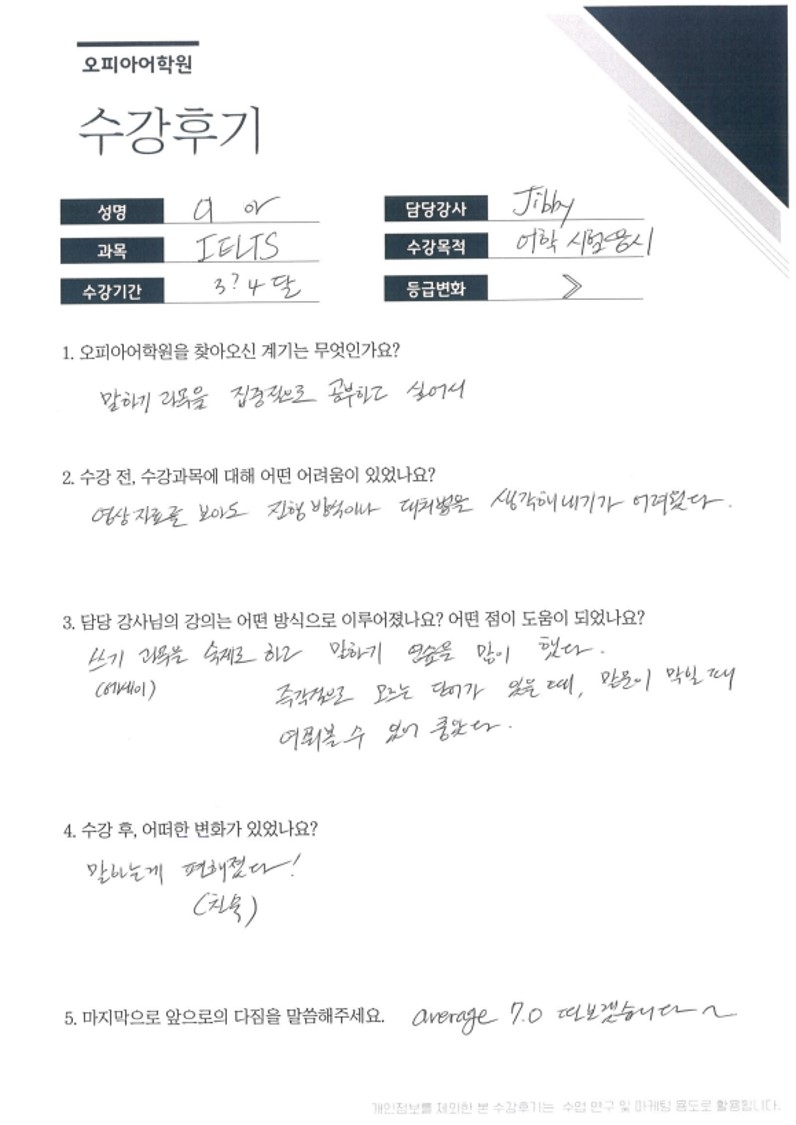 오피아어학원
수강후기
성명 이 아 담당강사 Jibby
과목 IELTS 수강목적 어학 시험 응시
수강기간 3?4달 등급변화 》
1. 오피아어학원을 찾아오신 계기는 무엇인가요?
말하기 과목을 집중적으로 공부하고 싶어서
2. 수강 전, 수강과목에 대해 어떤 어려움이 있었나요?
영상자료를 보아도 진행방식이나 대처법을 생각해내기가 어려웠다.
3. 담당 강사님의 강의는 어떤 방식으로 이루어졌나요? 어떤 점이 도움이 되었나요?
쓰기 과목을 숙제로 하고 말하기 연습을 많이 했다.
(에세이) 즉각적으로 모르는 단어가 있을 때, 말문이 막힐 때
여쭤볼 수 있어 좋았다.
4. 수강 후, 어떠한 변화가 있었나요?
말하는게 편해졌다!
(친목)
5. 마지막으로 앞으로의 다짐을 말씀해주세요. average 7.0 따보겠습니다~
개인정보를 제외한 본 수강후기는 수업 연구 및 마케팅 용도로 활용됩니다.